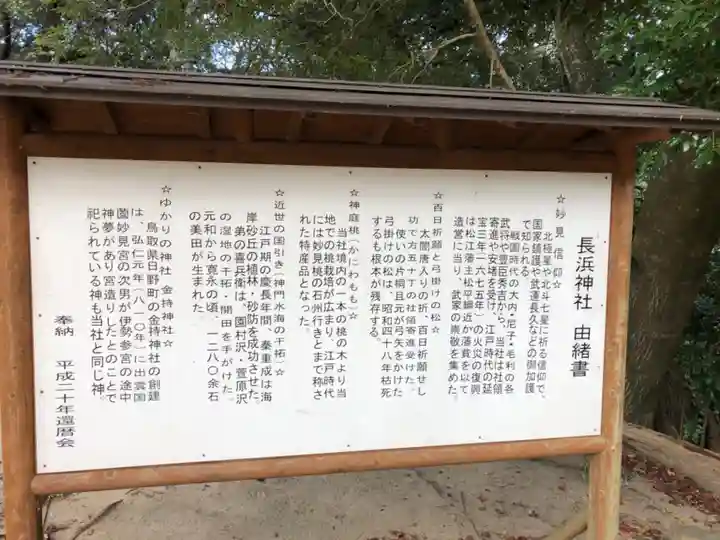 長浜神社 由緒書
☆妙見信仰☆
北極星や北斗七星に祈る信仰で、
国家鎮護や武運長久などの御加護
で知られる
戦国時代の大内・尼子・毛利の各
武将や豊臣秀吉から、当社は社領
寄進や安堵を受けた。江戸時代の延
宝三年(一六七五年)の火災の復興
は松江藩主松平綱近が藩費を以て
造営に当り、武家の崇敬を集めた。
☆百日祈願と弓掛けの松☆
太閤唐入りの折、百日祈願せし
功で方五十丁の社領寄進受けた。
使いの片桐且元が弓矢をかけた
弓掛けの松は、昭和四十八年枯死
するも根本が残存する。
☆神庭桃(かにわもも)☆
当社境内の一本の桃の木より当
地での桃栽培が広まり、江戸時代
には妙見桃の石州行きとまで称さ
れた特産品となった。
☆近世の国引き(神門水海の干拓)☆
江戸期の慶長年間、秦重成は海
岸砂丘の植林・砂防を成功させた。
弟の喜兵衛は、園村沢・菅原沢
の湿地の干拓・開田を手がけた。
元和から寛永の頃、一二八〇余石
の美田が生まれた。
☆ゆかりの神社 金持神社☆
鳥取県日野町の金持神社の創建
は、弘仁元年(八一〇年)に出雲国
薗妙見宮の次男が伊勢参宮の途中
神夢があり宮造りしたとのことで
祀られている神も当社と同じ神。
奉納 平成二十年還暦会